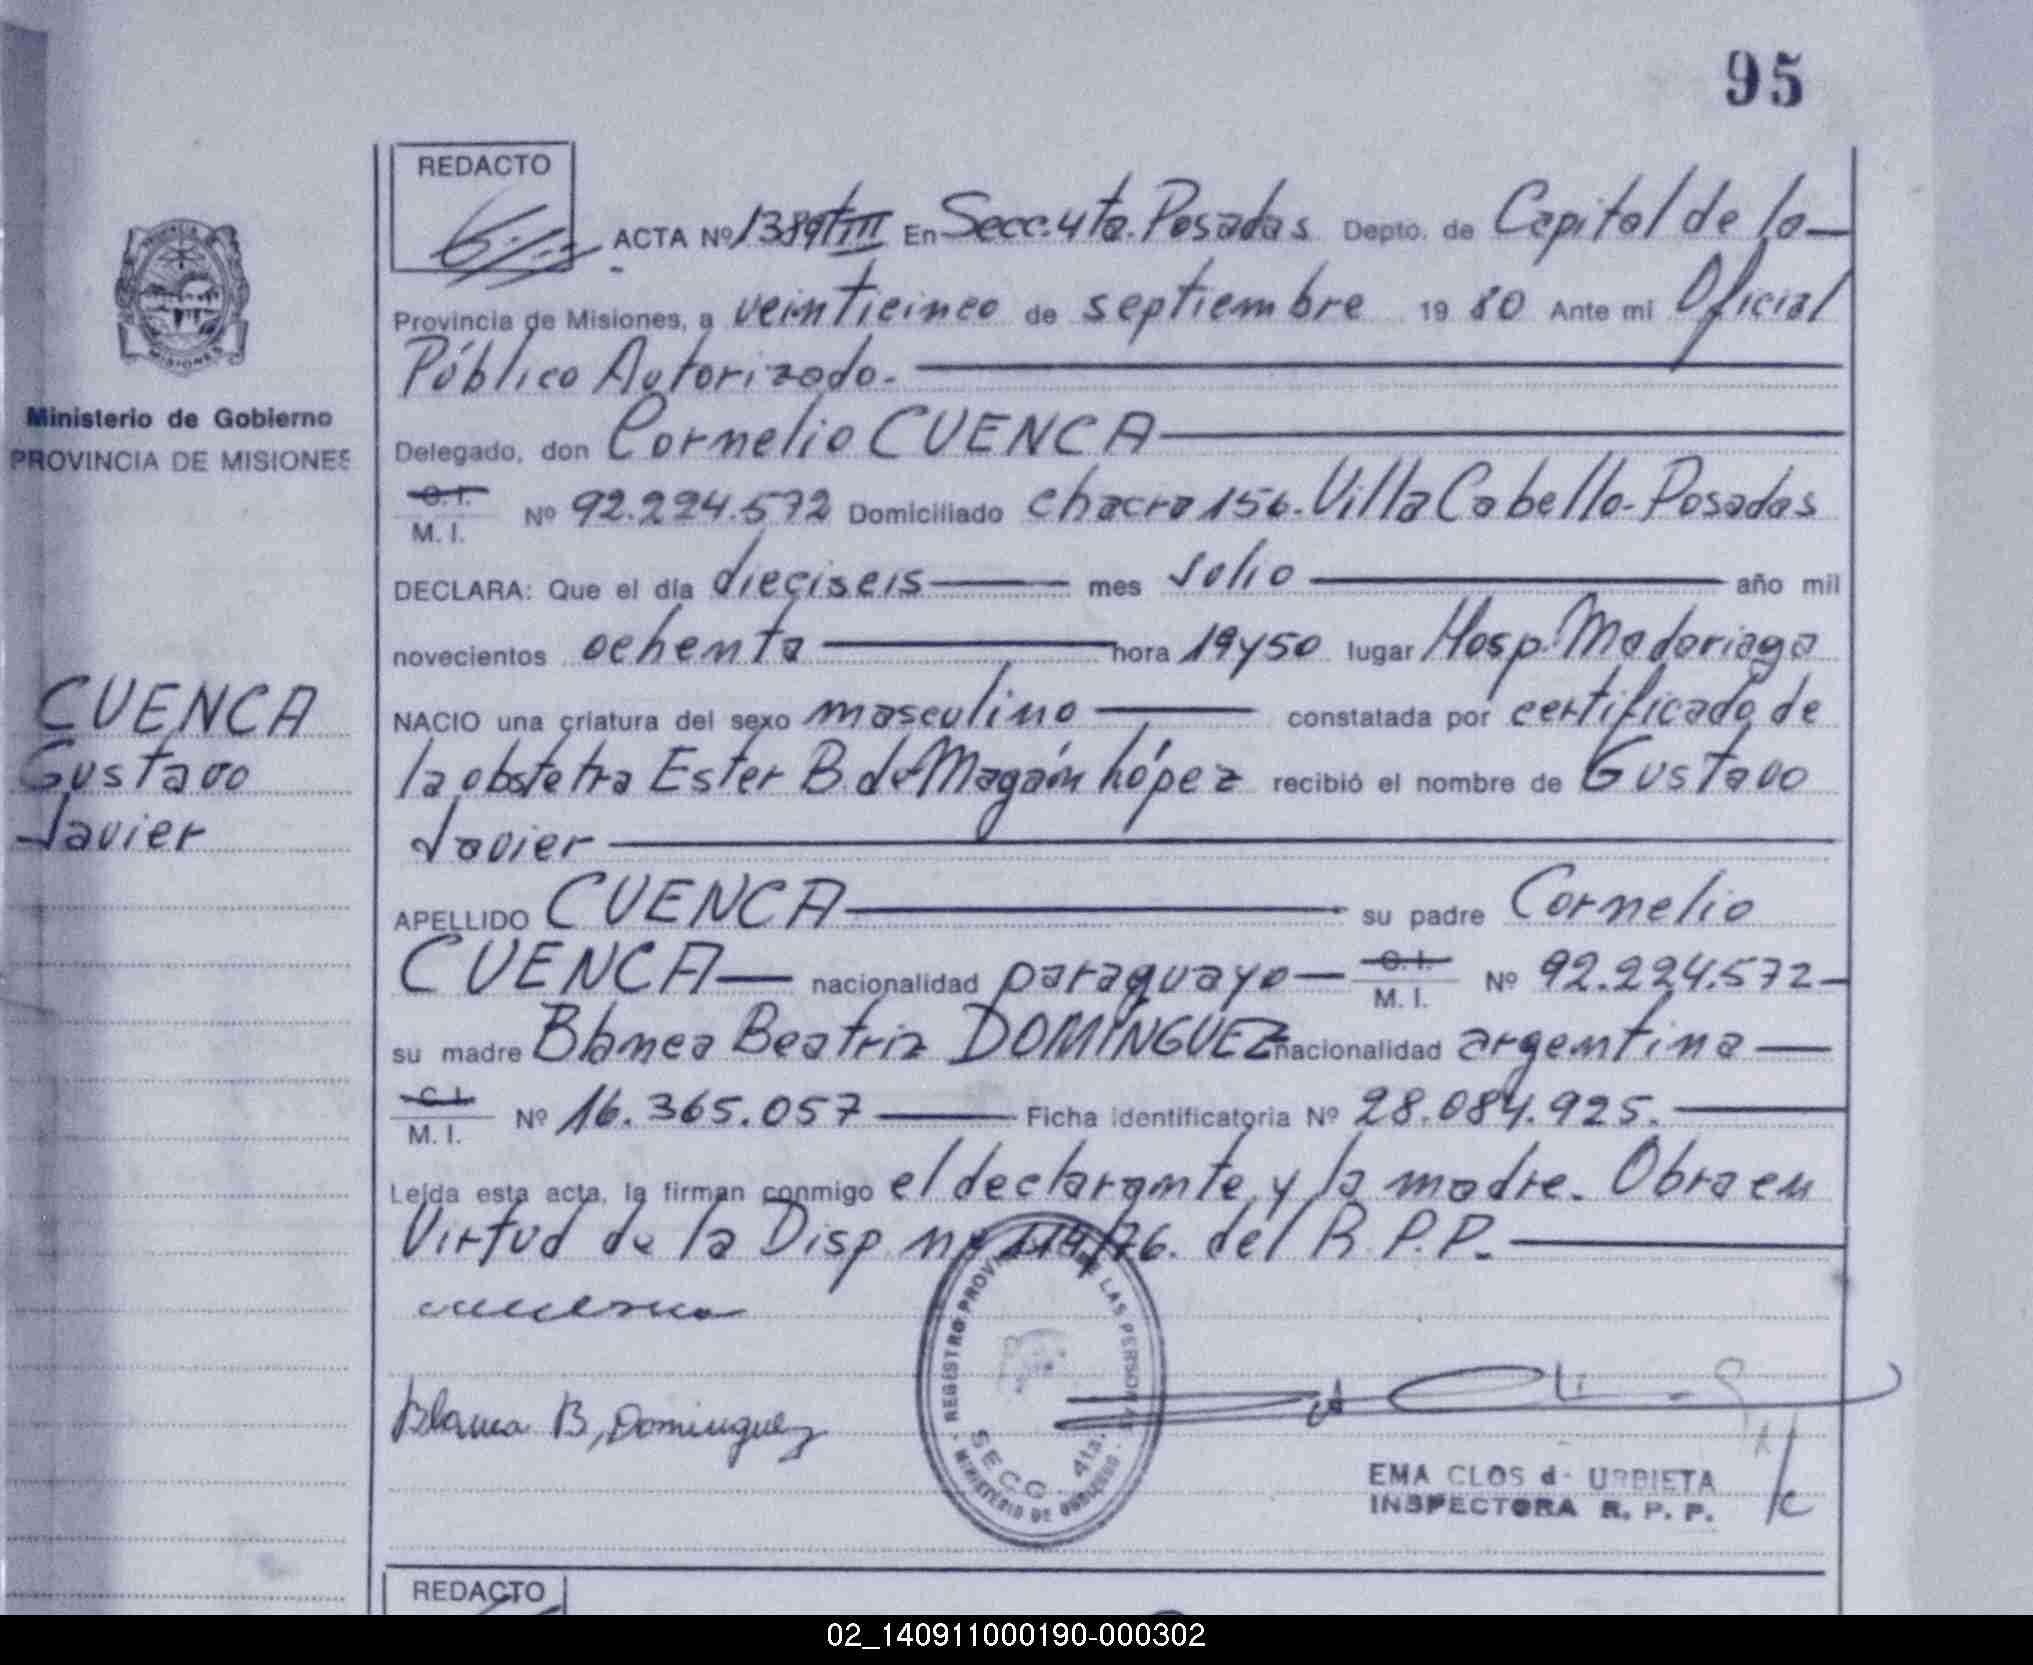 95
REDACTO
ACTA Nº 1389/TIII En Secc. 4ta. Posadas Depto. de Capital de la
Provincia de Misiones, a veinticinco de septiembre 19 80 Ante mi Oficial
Público Autorizado.
Ministerio de Gobierno
PROVINCIA DE MISIONES
Delegado, don Cornelio CUENCA
C. I.
M. I. Nº 92.224.572 Domiciliado chacra 156. Villa Cabello- Posadas
DECLARA: Que el día dieciseis mes Julio año mil
novecientos ochenta hora 19y50 lugar Hosp. Madariaga
CUENCA
Gustavo
Javier
NACIO una criatura del sexo masculino constatada por certificado de
la obstetra Ester B. de Magán López recibió el nombre de Gustavo
Javier
APELLIDO CUENCA su padre Cornelio
CUENCA nacionalidad paraguayo C. I. M. I. Nº 92.224.572
su madre Blanca Beatriz DOMÍNGUEZ nacionalidad argentina
C. I.
M. I. Nº 16.365.057 Ficha identificatoria Nº 28.084.925.
Leída esta acta, la firman conmigo el declarante y la madre. Obra en
Virtud de la Disp nº 114/76. del R. P. P.
Blanca B, Dominguez
REGISTRO PROV LAS PERSONAS
SECC. 4ta.
MINISTERIO DE GOBIERNO
EMA CLOS de URBIETA
INSPECTORA R. P. P.
REDACTO
02_140911000190-000302